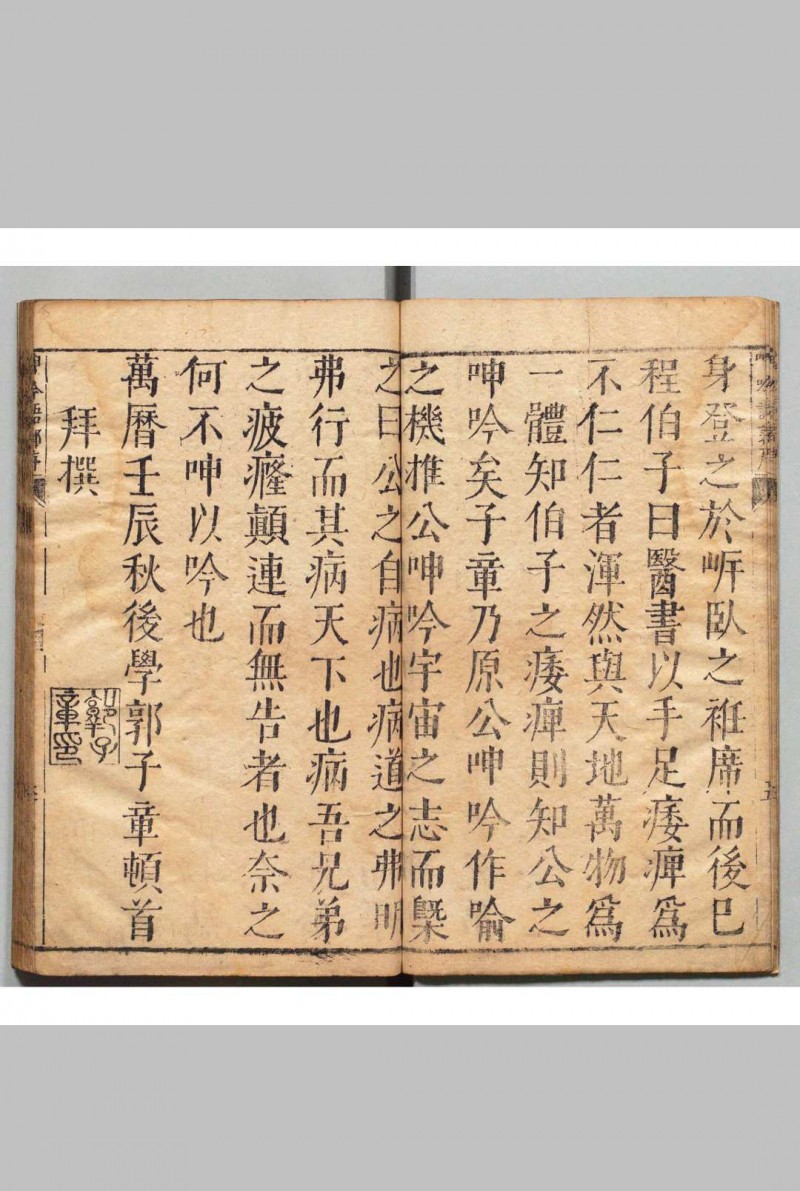 身登之於岸臥之袵席而後已
程伯子曰醫書以手足痿痺爲
不仁仁者渾然與天地萬物爲
一體知伯子之痿痺則知公之
呻吟矣子章乃原公呻吟作喻
之機推公呻吟宇宙之志而槩
之曰公之自病也病道之弗明
弗行而其病天下也病吾兄弟
之疲癃顛連而無告者也奈之
何不呻以吟也
萬曆壬辰秋後學郭子章頓首
拜撰
郭子章印